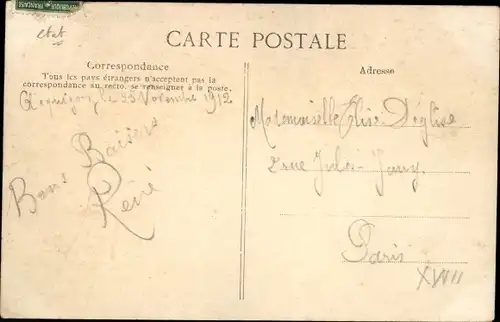 RÉPUBLIQUE FRANÇAISE
état
CARTE POSTALE
Correspondance
Tous les pays étrangers n'acceptent pas la
correspondance au recto. se renseigner à la poste.
le 25 Novembre 1912
Bons Baisers
René
Adresse
Mademoiselle Elise Déglise
2 rue Jules
Paris
XVII